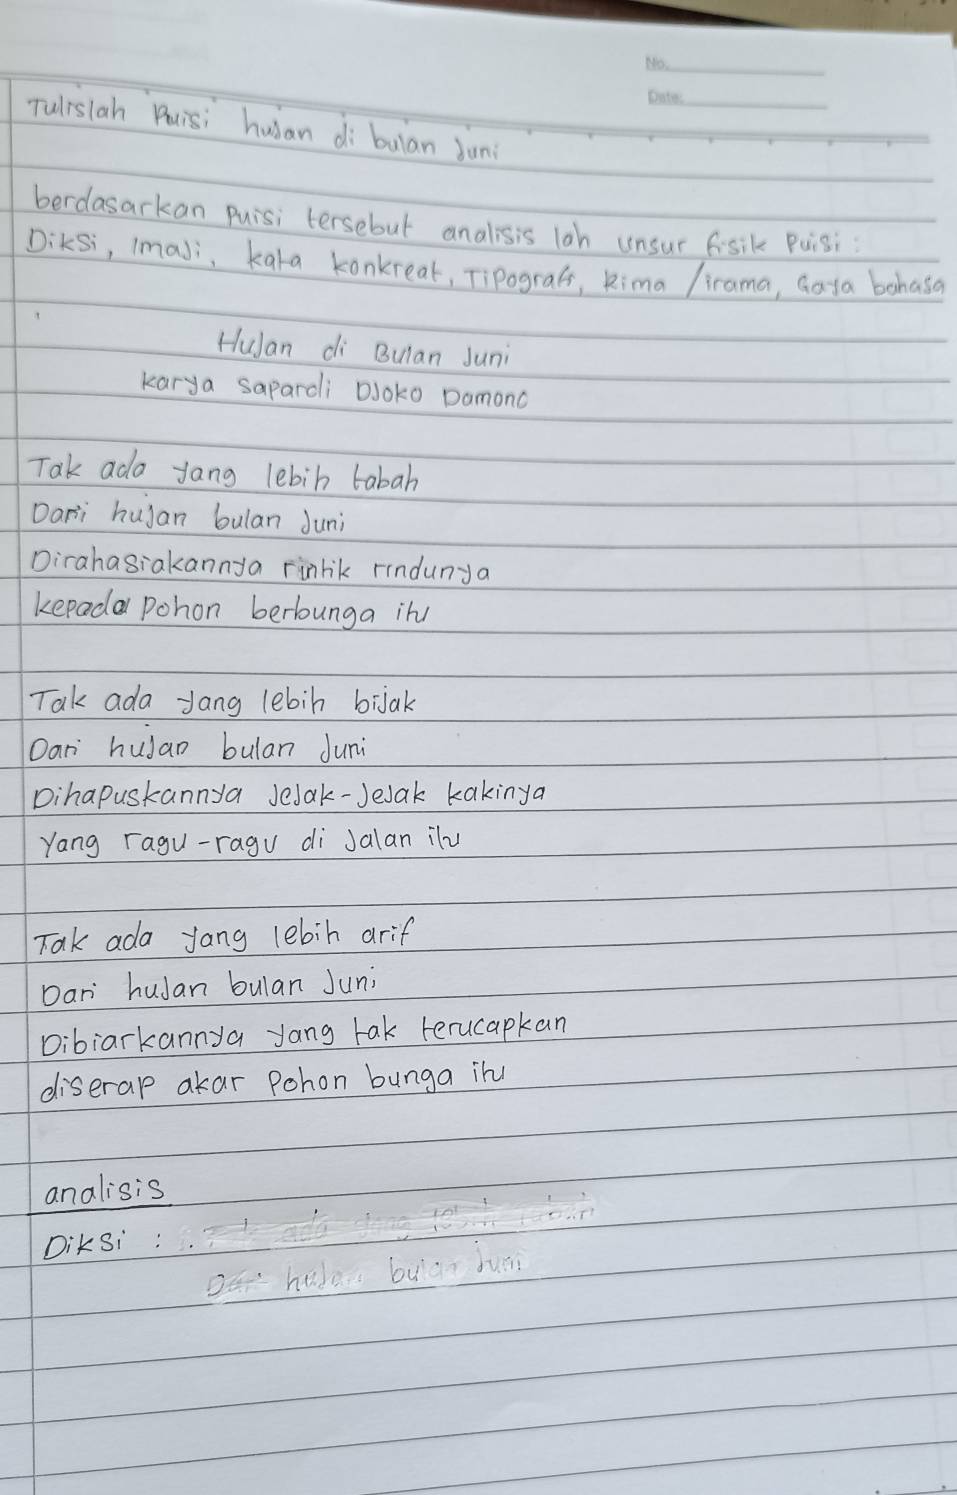 No.
Date:
Tulislah Puisi hujan di bulan Juni
berdasarkan puisi tersebut analisis lah unsur fisik Puisi :
Diksi, Imaji, kata konkreat, Tipografi, Rima /irama, Gaya bahasa
Hujan di Bulan Juni
karya Sapardi Djoko Damono
Tak ada yang lebih tabah
Dari hujan bulan Juni
Dirahasiakannya rintik rindunya
kepada pohon berbunga itu
Tak ada yang lebih bijak
Dari hujan bulan Juni
Dihapuskannya Jejak-Jejak kakinya
Yang ragu-ragu di Jalan itu
Tak ada yang lebih arif
Dari hujan bulan Juni
Dibiarkannya yang tak terucapkan
diserap akar Pohon bunga itu
analisis
Diksi : . Tak ada yang lebih tabah
Dari hujan bulan Juni